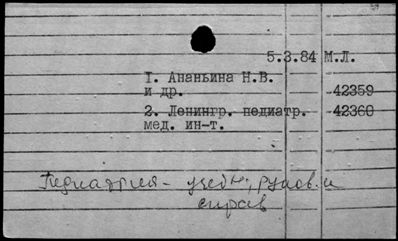 5.3.84 М.Л.
1. Ананьина Н.В.
и др. 42359
2. Ленингр. педиатр. 42360
мед. ин-т.
Педиатрия - учебн, руков. и
справ